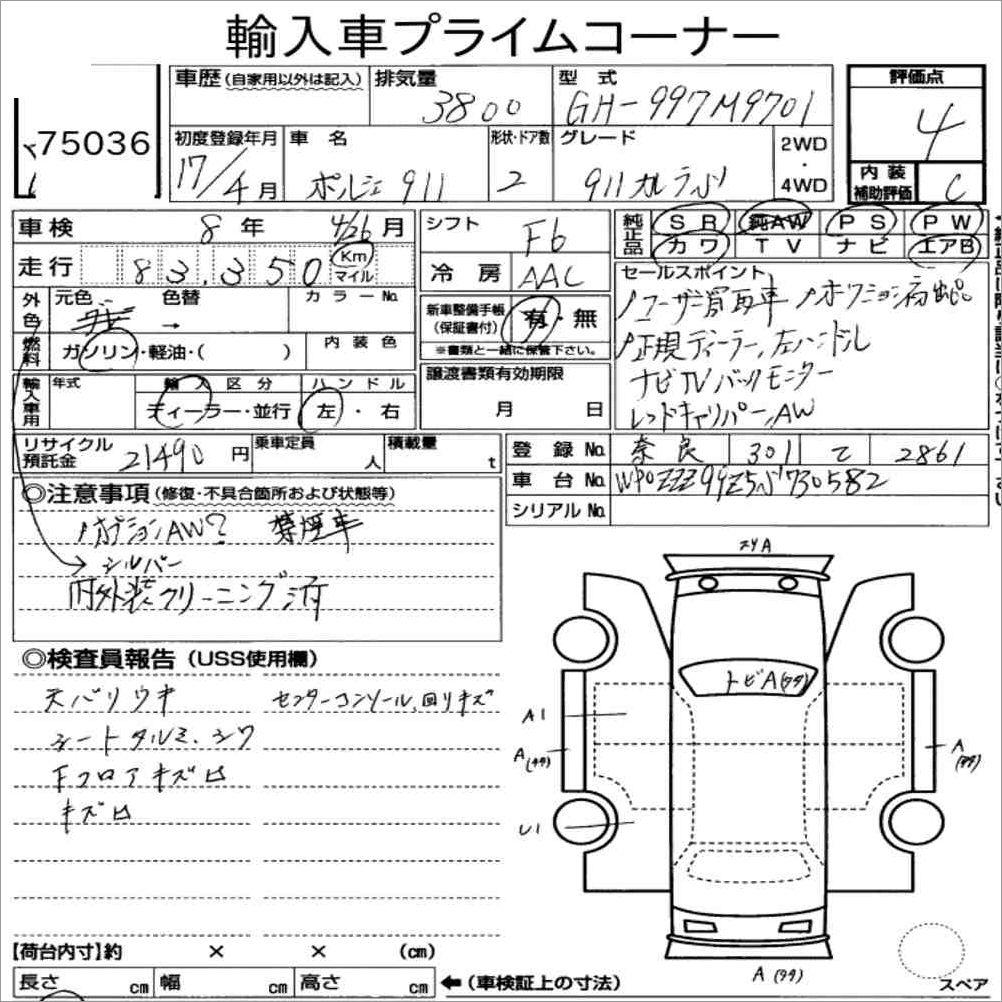 輸入車プライムコーナー
75036
車歴 (自家用以外は記入)
排気量
3800
型 式
GH-997M9701
評価点
4
内装補助評価
C
初度登録年月
17/4月
車 名
ポルシェ 911
形状・ドア数
2
グレード
911カレラS
2WD
・
4WD
車検 8 年 4/26 月
走行 83,350 Km マイル
シフト F6
冷 房 AAC
純正品 SR 純AW PS PW
カワ TV ナビ エアB
セールスポイント
ユーザー買取車
正規ディーラー,左ハンドル
ナビTVバックモニター
レッドキャリパー,AW
外色 元色 色替 カラーNo.
→
燃料 ガソリン・軽油・( ) 内装色
新車整備手帳(保証書付) 有・無
※書類と一緒に保管下さい。
輸入車用 年式 輸入区分 ハンドル
ディーラー・並行 左・右
譲渡書類有効期限
月 日
リサイクル預託金 21490 円
乗車定員 人
積載量 t
登録No. 奈良 301 て 2861
車台No. WP0ZZZ99Z5S730582
シリアルNo.
◎注意事項 (修復・不具合箇所および状態等)
オプションAW? 禁煙車
→ シルバー
内外装クリーニング済
◎検査員報告 (USS使用欄)
天バリウキ センターコンソール,回りキズ
シートタルミ、シワ
Fフロアキズ凹
キズ凹
スリA
トビA(タタ)
A1
A(タタ)
A(タタ)
U1
A(タタ)
スペア
【荷台内寸】約 × × (cm)
長さ cm 幅 cm 高さ cm ←(車検証上の寸法)